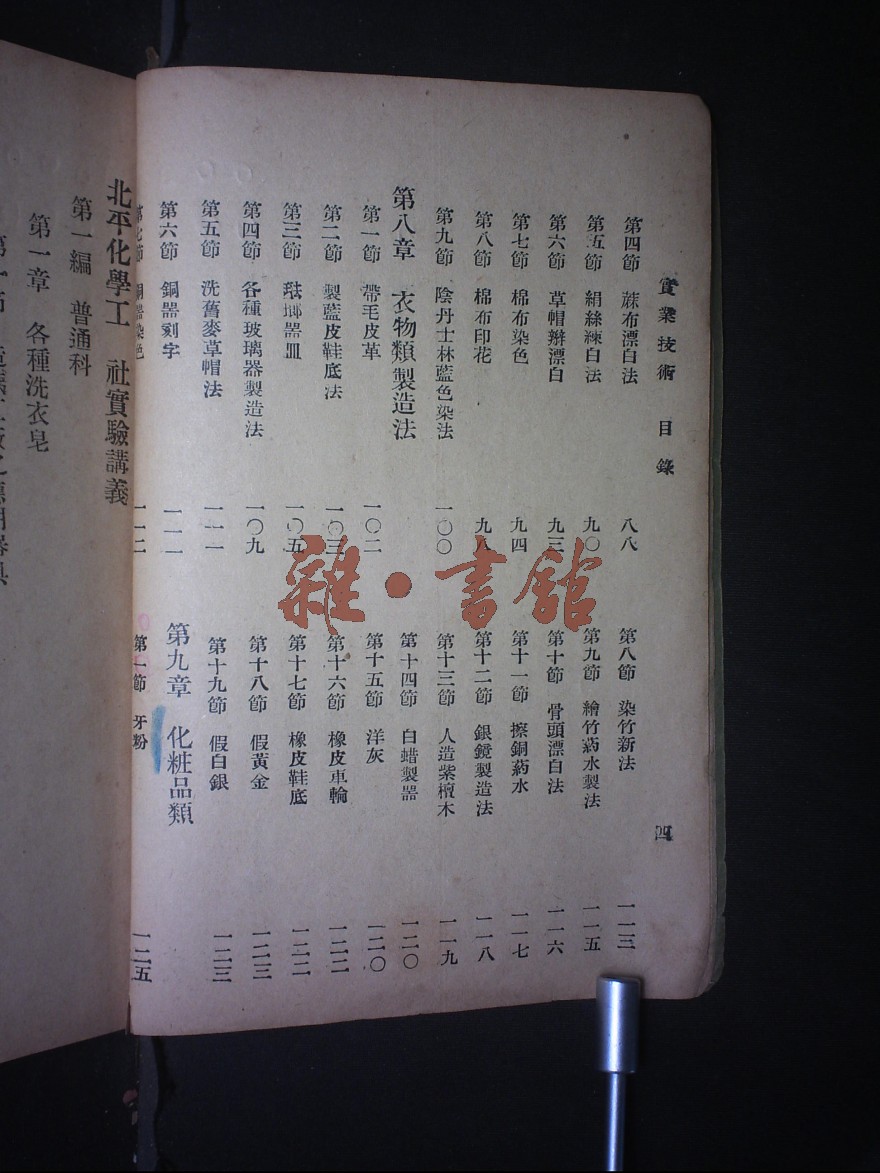 實業技術 目錄 四
第四節 蔴布漂白法 八八
第五節 絹絲練白法 九〇
第六節 草帽辮漂白 九三
第七節 棉布染色 九四
第八節 棉布印花 九八
第九節 陰丹士林藍色染法 一〇〇
第八章 衣物類製造法
第一節 帶毛皮革 一〇二
第二節 製藍皮鞋底法 一〇三
第三節 琺瑯器皿 一〇五
第四節 各種玻璃器製造法 一〇九
第五節 洗舊麥草帽法 一一一
第六節 銅器刻字 一一一
第七節 銅器染色 一一二
第八節 染竹新法 一一三
第九節 繪竹葯水製法 一一五
第十節 骨頭漂白法 一一六
第十一節 擦銅葯水 一一七
第十二節 銀鏡製造法 一一八
第十三節 人造紫檀木 一一九
第十四節 白蜡製器 一二〇
第十五節 洋灰 一二〇
第十六節 橡皮車輪 一二二
第十七節 橡皮鞋底 一二二
第十八節 假黃金 一二三
第十九節 假白銀 一二三
第九章 化粧品類
第一節 牙粉 一二五
北平化學工 社實驗講義
第一編 普通科
第一章 各種洗衣皂
雜·書館